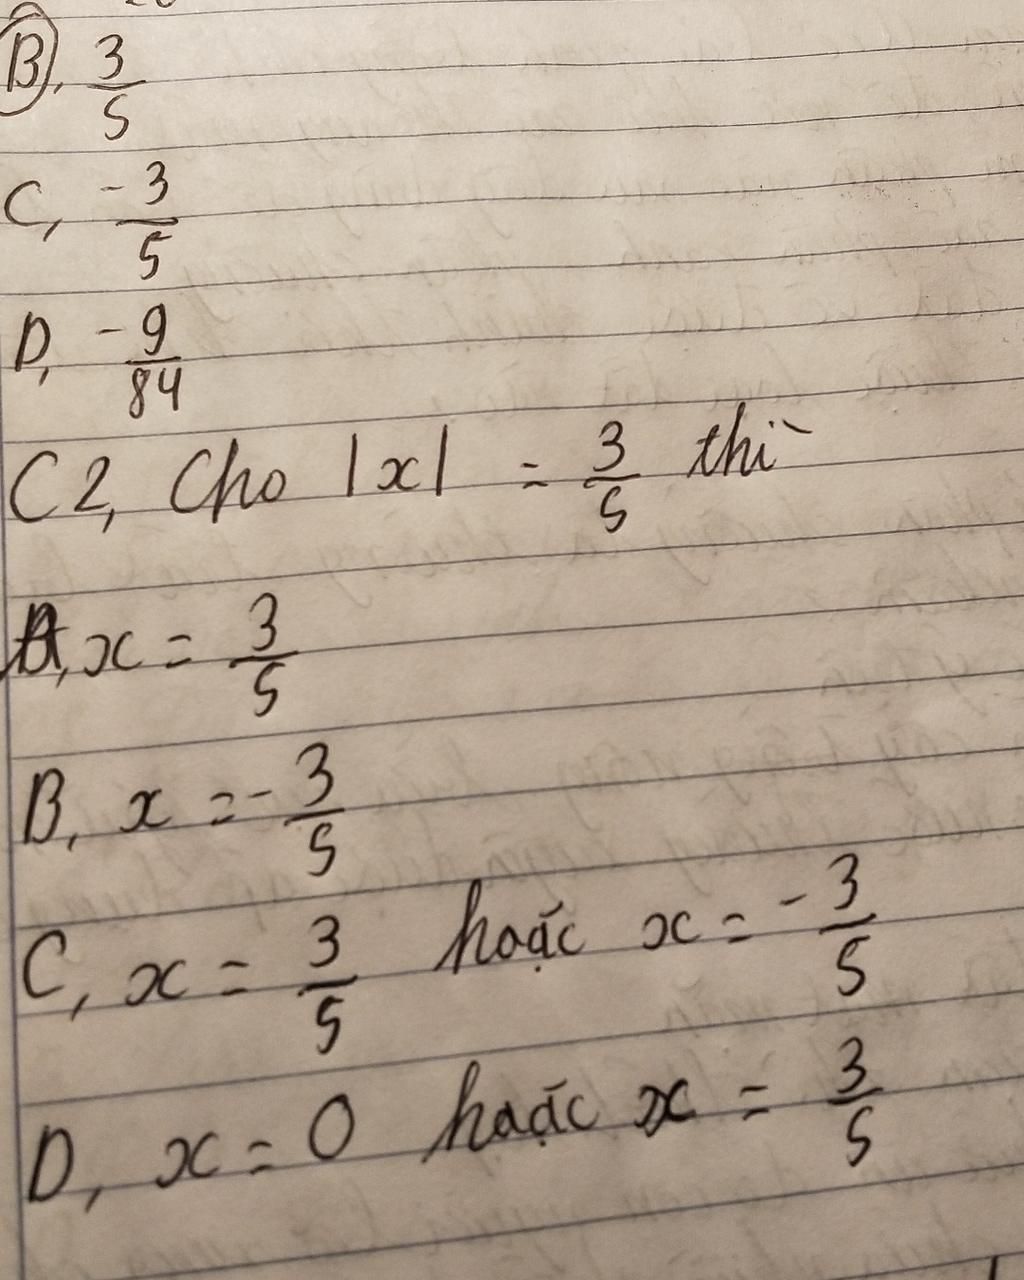 B, 3/5
C, -3/5
D, -9/84
C2, Cho |x| = 3/5 thì
A, x = 3/5
B, x = -3/5
C, x = 3/5 hoặc x = -3/5
D, x = 0 hoặc x = 3/5